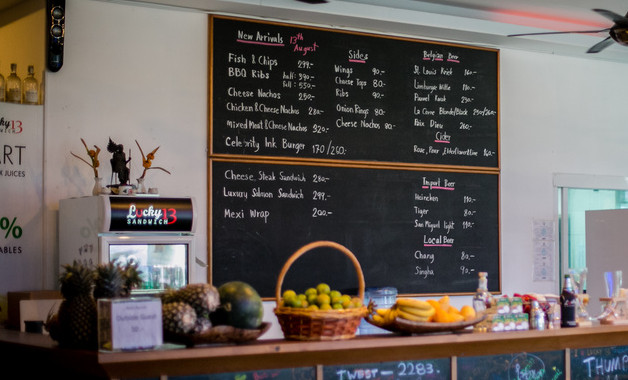 New Arrivals 13th August
Fish & Chips 299.-
BBQ Ribs half: 390.-
full: 550.-
Cheese Nachos 250.-
Chicken & Cheese Nachos 280.-
Mixed Meat & Cheese Nachos 320.-
Celebrity Ink Burger 170/260.-
Sides
Wings 90.-
Cheese Tops 80.-
Ribs 90.-
Onion Rings 80.-
Cheese Nachos 80.-
Belgian Beer
St. Louis Kriek
Limburgse Witte
Pauwel Kwak
La Corne Blonde/Black 250/260.-
Paix Dieu 260.-
Cider
Rose, Pear, Elderflower & Lime
Cheese, Steak Sandwich 280.-
Luxury Salmon Sandwich 299.-
Mexi Wrap 200.-
Import Beer
Heineken
Tiger 80.-
San Miguel light
Local Beer
Chang 80.-
Singha 90.-
Lucky 13
SANDWICH
13
ART
JUICES
%
ABLES
Outside Guest
TWEET - 2283.
THUMP